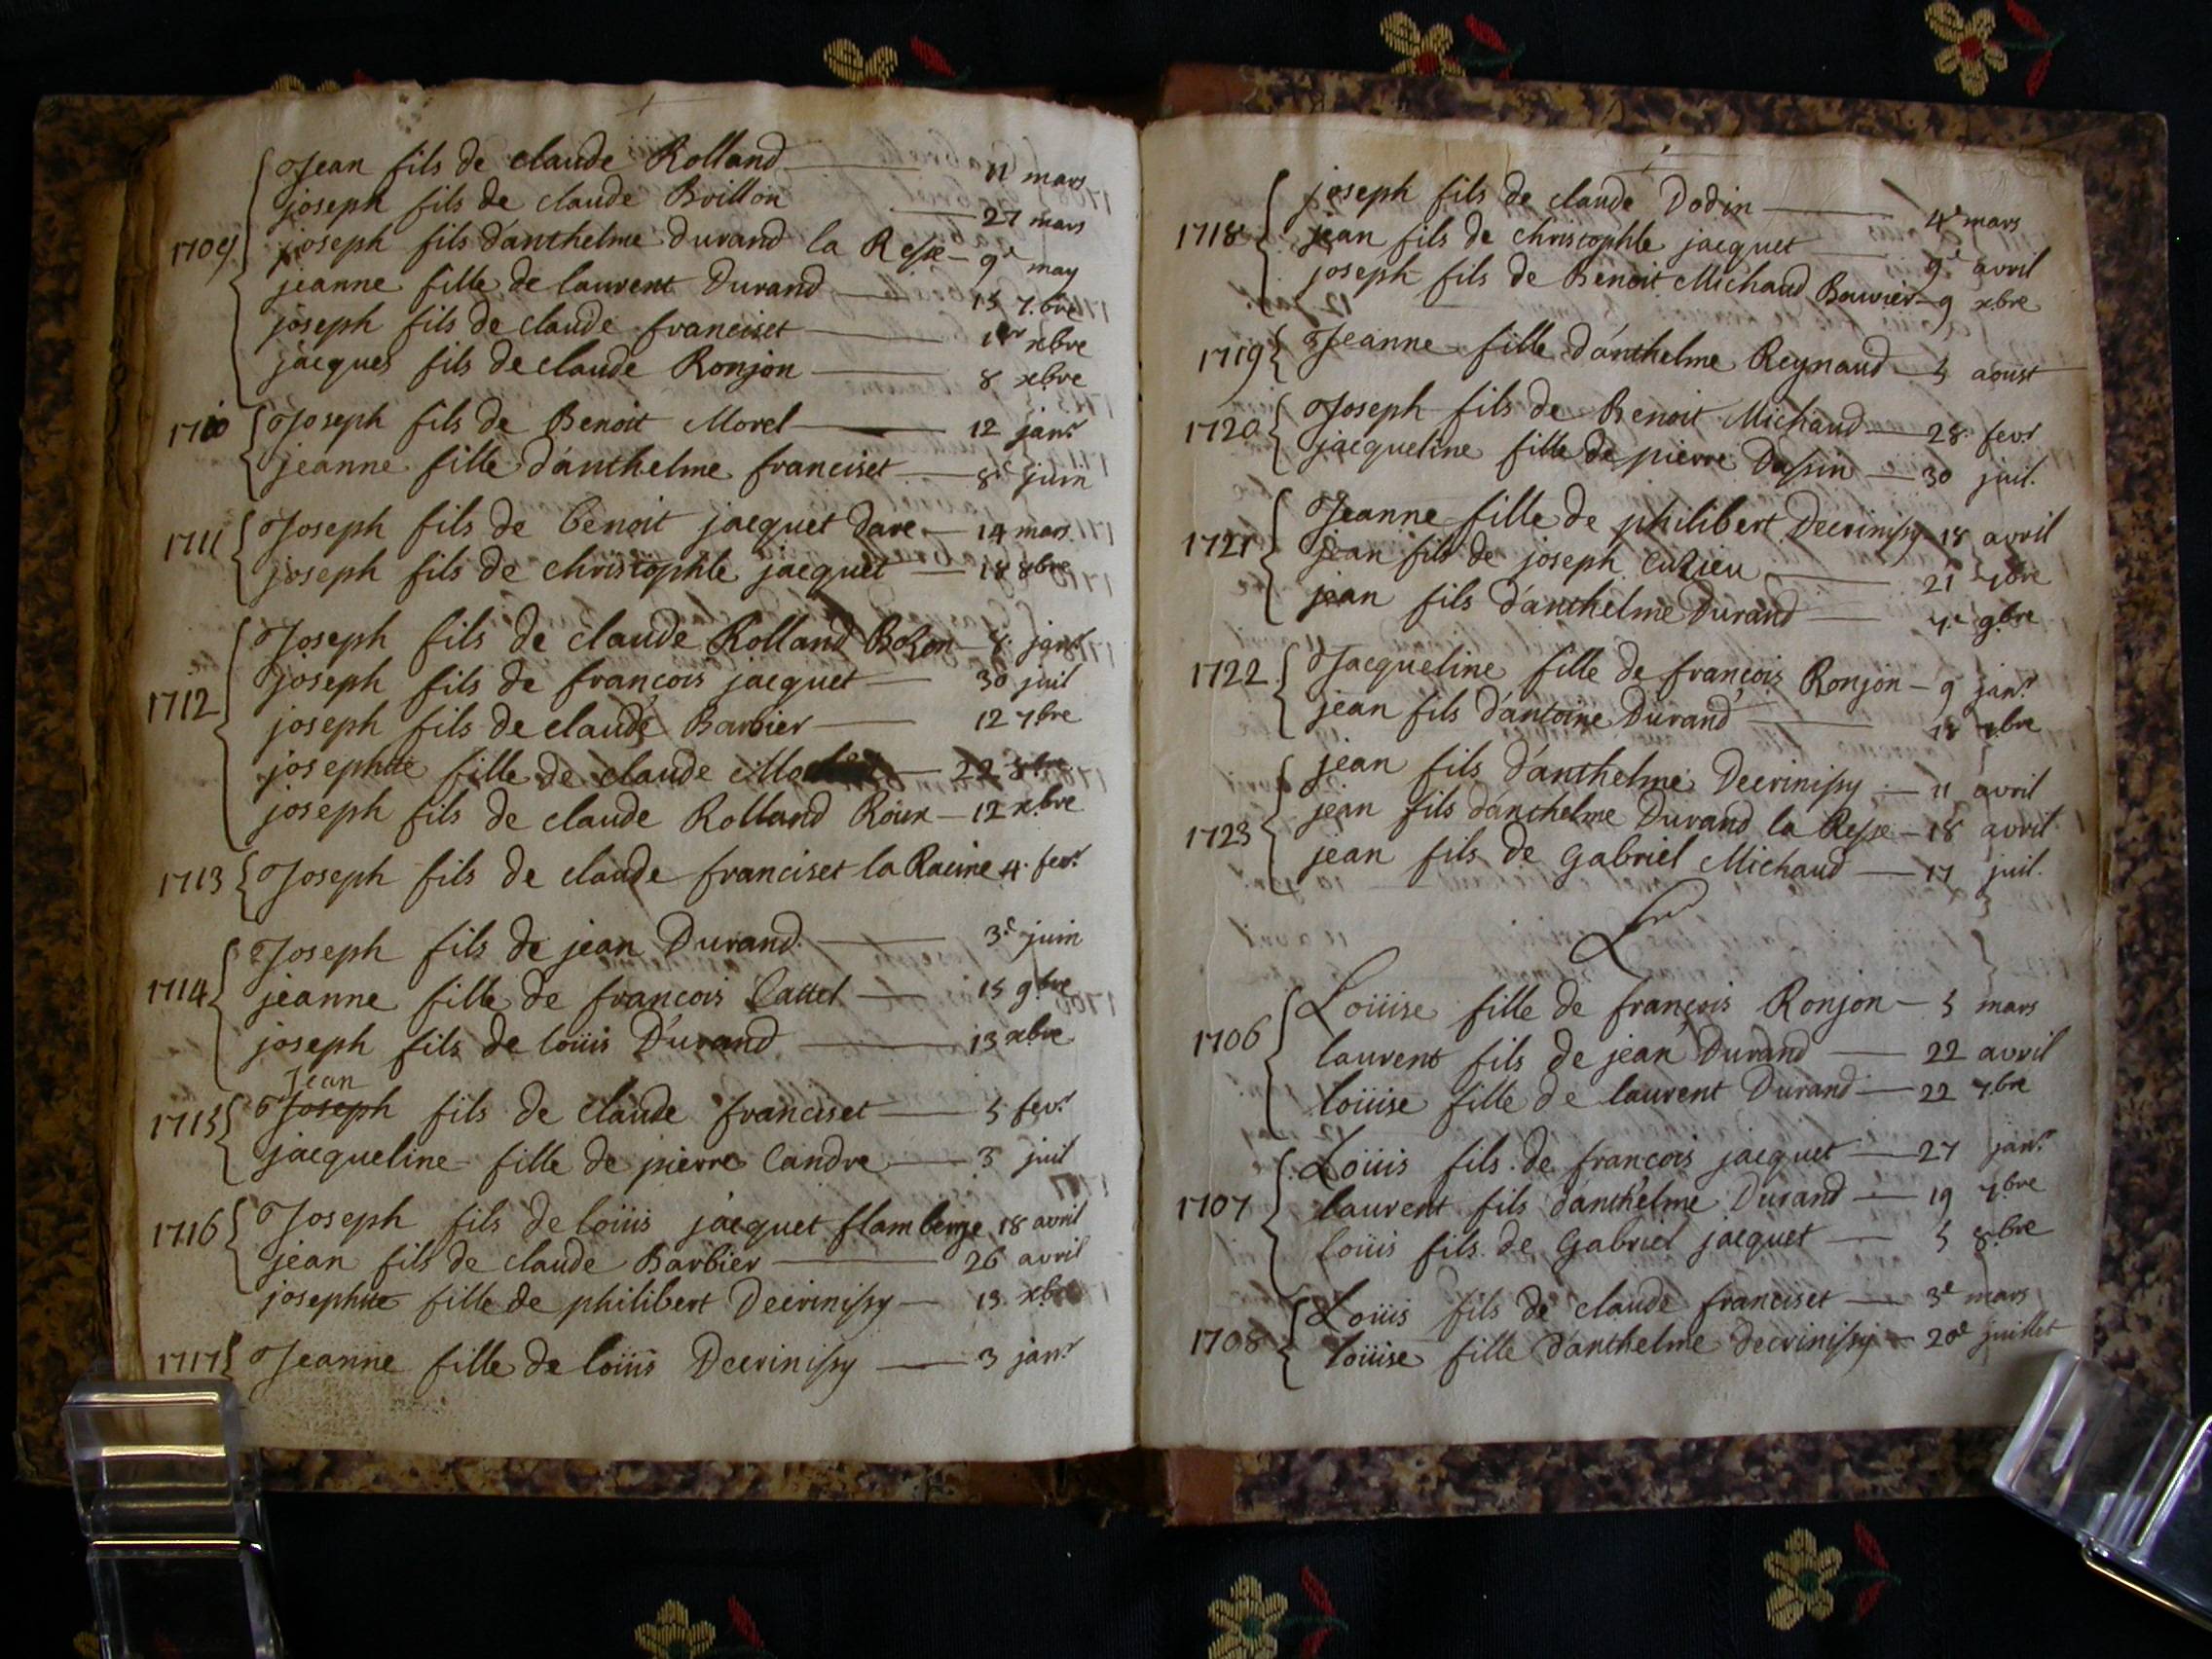 1709 Jean fils de claude Rolland 11 mars
joseph fils de claude Brillon 27 mars
joseph fils d'anthelme durand la Resse 9e may
jeanne fille de laurent Durand 15 7.bre
joseph fils de claude franciset 1er xbre
jacques fils de claude Ronjon 8 xbre
1710 Joseph fils de Benoit Morel 12 janr
jeanne fille d'anthelme franciset 8e juin
1711 Joseph fils de benoit jacquet dare 14 mars
joseph fils de christophle jacquet 18 8bre
1712 Joseph fils de claude Rolland Bozon janr
joseph fils de francois jacquet 30 juil
joseph fils de claude Barbier 12 7bre
josephte fille de claude 22
joseph fils de claude Rolland Roux 12 xbre
1713 Joseph fils de claude franciset la Racine 4. fevr
1714 Joseph fils de jean Durand 3e juin
jeanne fille de francois Cattel 15 9bre
joseph fils de loüis Durand 13 xbre
Jean
1715 Joseph fils de claude franciset 5 fevr
jacqueline fille de pierre Candre 3 juil
1716 Joseph fils de loüis jacquet flamberge 18 avril
jean fils de claude Barbier 26 avril
josephte fille de philibert Decrinissy 13 xbre
1717 Jeanne fille de loüis Decrinissy 3 janr
1718 joseph fils de claude Dodin 4e mars
jean fils de christophle jacquet 9e avril
joseph fils de Benoit Michaud Bouvier 9 xbre
1719 Jeanne fille d'anthelme Reynaud 5 aoust
1720 Joseph fils de Benoit Michaud 28 fevr
jacqueline fille de pierre Dassin 30 juil.
1721 Jeanne fille de philibert Decrinissy 18 avril
jean fils de joseph Cuzieu 21 7bre
jean fils d'anthelme Durand 7e 9bre
1722 Jacqueline fille de francois Ronjon 9 janr
jean fils d'antoine Durand 18 7bre
1723 jean fils d'anthelme Decrinissy 11 avril
jean fils d'anthelme Durand la Resse 18 avril
jean fils de Gabriel Michaud 17 juil.
L
1706 Loüise fille de françois Ronjon 5 mars
laurent fils de jean Durand 22 avril
loüise fille de laurent Durand 22 7bre
1707 Loüis fils de francois jacquet 27 janr
laurent fils d'anthelme Durand 19 7bre
loüis fils de Gabriel jacquet 5 8bre
1708 Loüis fils de claude franciset 3e mars
loüise fille d'anthelme decrinissy 20e juillet